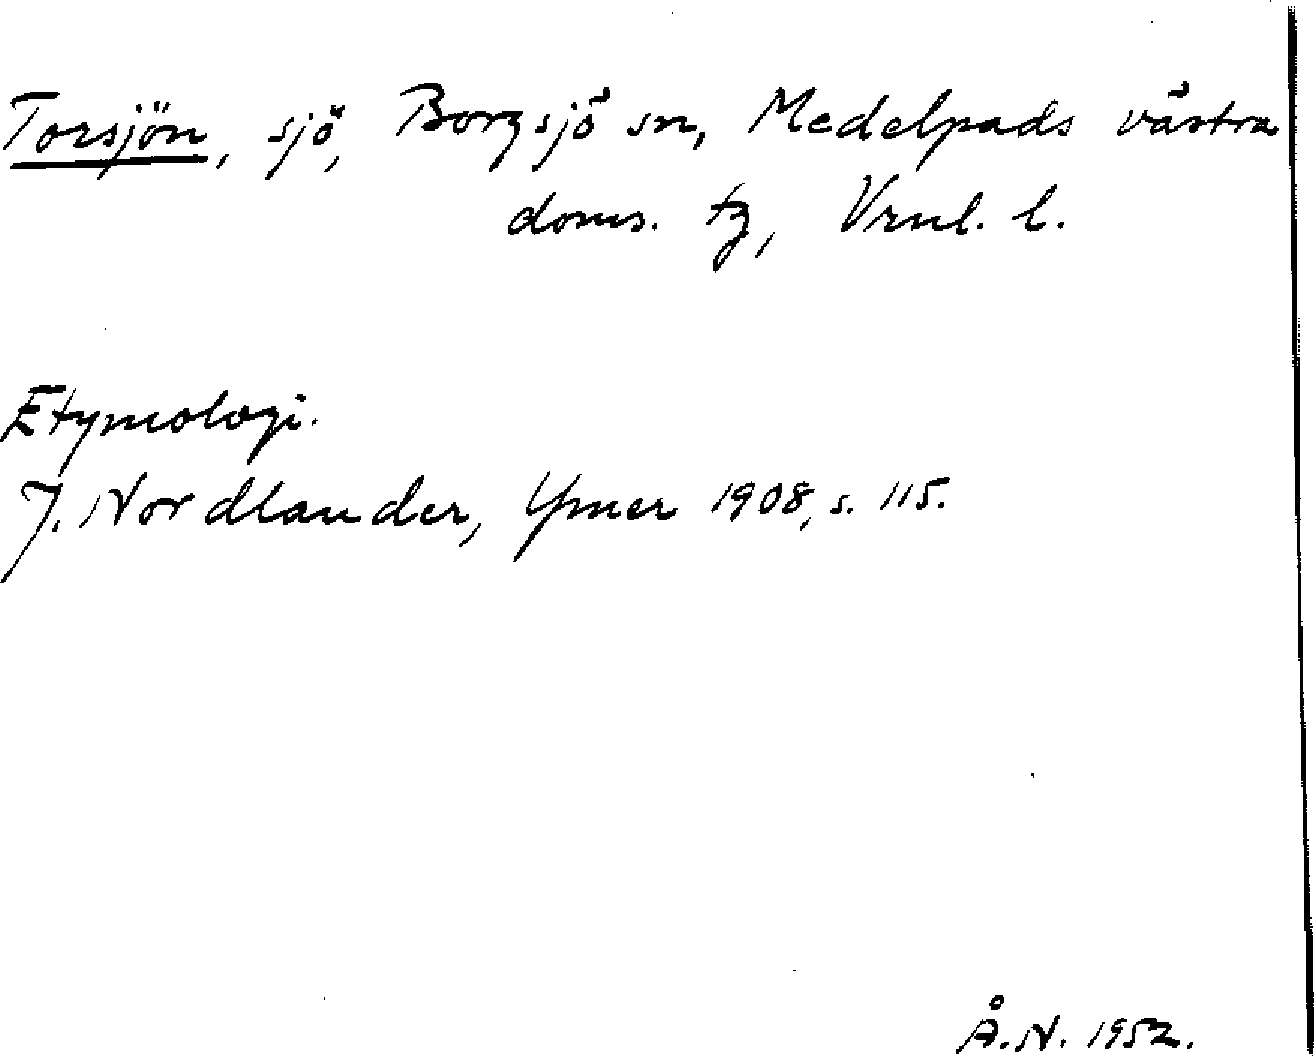 Torsjön, sjö, Borgsjö sn, Medelpads västra
doms. tg, Vrnl. l.
Etymologi.
J. Nordlander, Ymer 1908, s. 115.
Å.N. 1952.